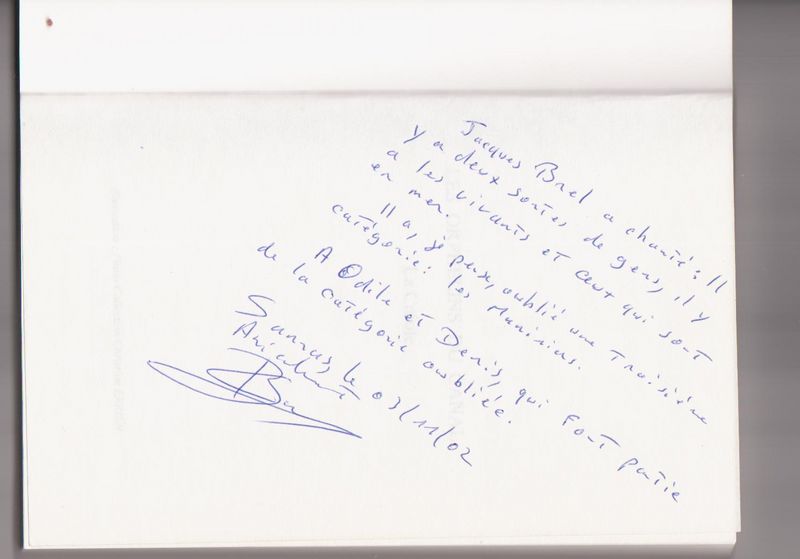 Jacques Brel a chanté : Il
y a deux sortes de gens, il y
a les vivants et ceux qui sont
en mer.
Il a, je pense, oublié une troisième
catégorie : les Mariniers.
A Odile et Denis, qui font partie
de la catégorie oubliée.
le 03/11/02